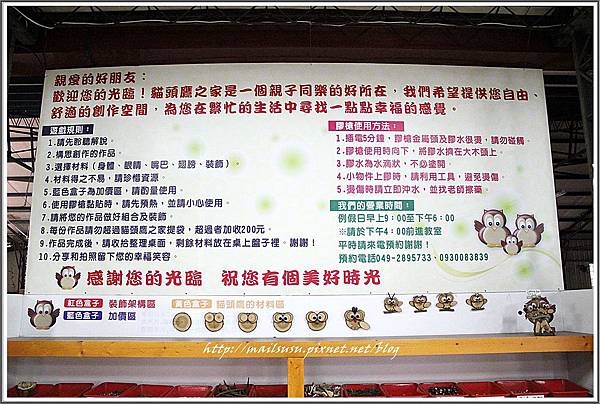 親愛的好朋友：
歡迎您的光臨！貓頭鷹之家是一個親子同樂的好所在，我們希望提供您自由、
舒適的創作空間，為您在繁忙的生活中尋找一點點幸福的感覺。
遊戲規則：
1.請先聆聽解說。
2.構思創作的作品。
3.選擇材料（身體、眼睛、嘴巴、翅膀、裝飾）。
4.材料得之不易，請珍惜資源。
5.藍色盒子為加價區，請酌量使用。
6.使用膠槍黏貼時，請先預熱，並請小心使用。
7.請將您的作品做好組合及裝飾。
8.每份作品請勿超過貓頭鷹之家提袋，超過者加收200元。
9.作品完成後，請收拾整理桌面，剩餘材料放在桌上盤子裡。謝謝！
10.分享和拍照留下您的幸福笑容。
膠槍使用方法：
1.插電5分鐘，膠槍金屬頭及膠水很燙，請勿碰觸。
2.膠槍使用時向下，將膠水擠在大木頭上。
3.膠水為水滴狀，不必塗開。
4.小物件上膠時，請利用工具，避免燙傷。
5.燙傷時請立即沖水，並找老師擦藥。
我們的營業時間：
例假日早上9：00至下午6：00
※請於下午4：00前進教室
平時請來電預約謝謝！
預約電話049-2895733、0930083839
感謝您的光臨 祝您有個美好時光
紅色盒子 裝飾架構區
黃色盒子 貓頭鷹的材料區
藍色盒子 加價區
http://mailsusu.pixnet.net/blog